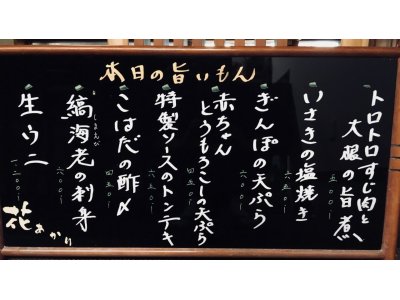 本日の旨いもん
トロトロすじ肉と
大根の旨煮
五〇〇
いさきの塩焼き
六五〇
ぎんぽの天ぷら
六〇〇
赤ちゃん
とうもろこしの天ぷら
四五〇
特製ソースのトンテキ
六五〇
こはだの酢〆
四五〇
縞海老の刺身
しまえび
六〇〇
生ウニ
一二〇〇
花あかり